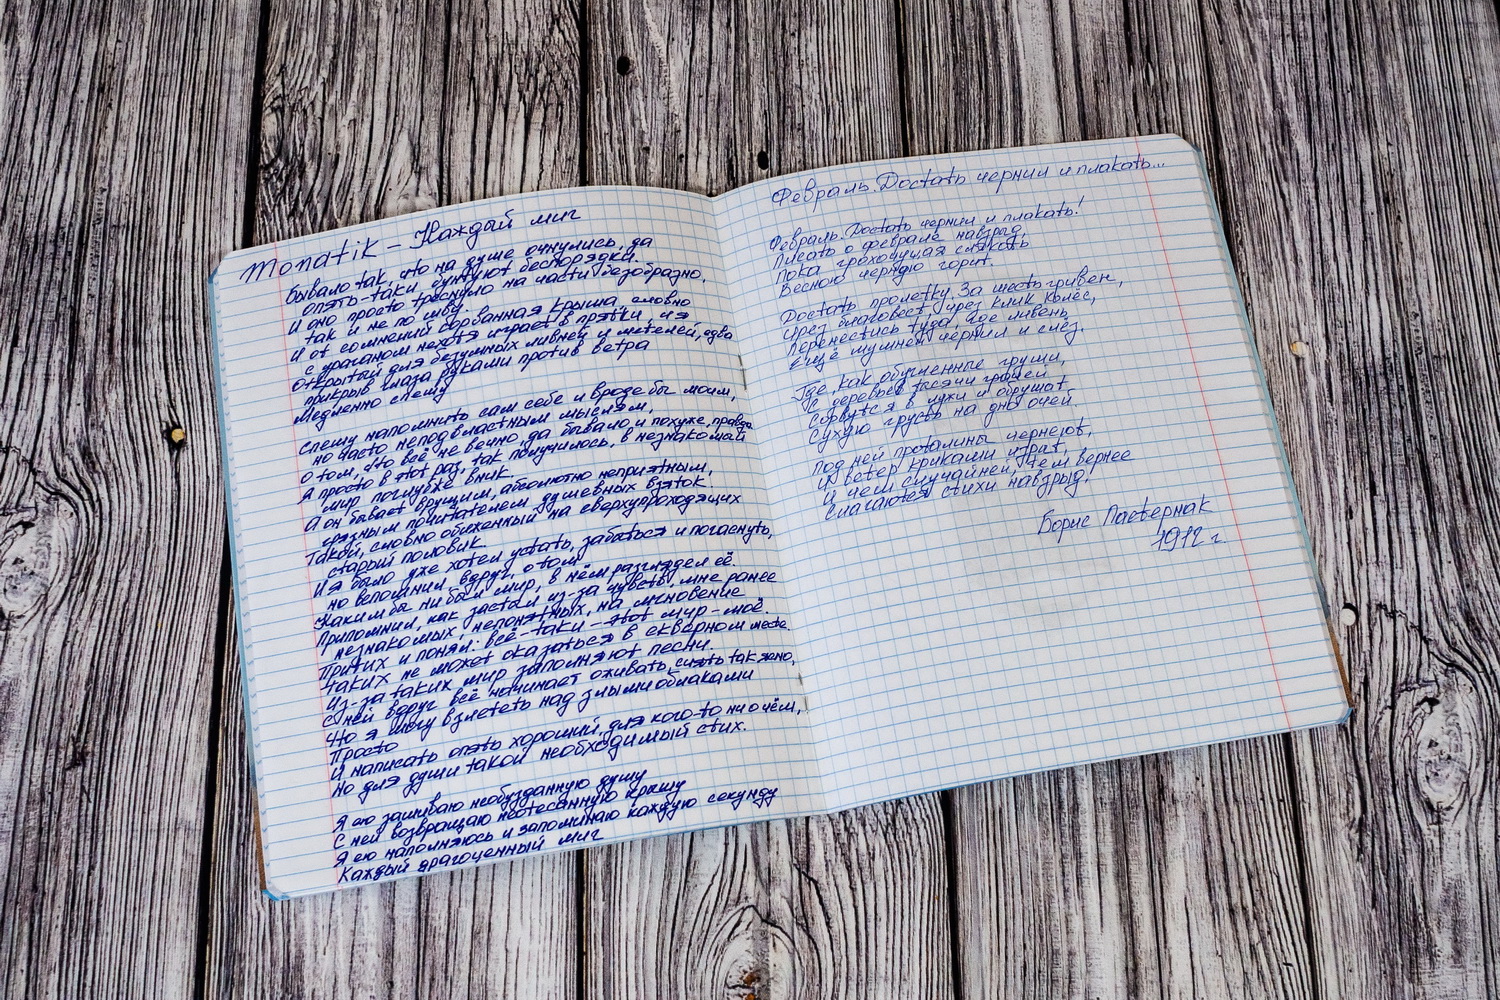 Monatik – Каждый миг
Бывало так, что на душе очнулись, да
опять-таки бунтуют беспорядки.
И оно просто треснуло на части безобразно,
так и не по шву.
И от сомнений сорванная крыша, словно
с ураганом нехотя играет в прятки, и я
Открытый для безумных ливней и метелей, едва
прикрыв глаза руками против ветра
Медленно спешу
Спешу напомнить сам себе и вроде бы моим,
но часто неподвластным мыслям,
О том, что всё не вечно, да бывало и похуже, правда
Я просто в этот раз, так получилось, в незнакомый
мир поглубже вник
А он бывает врущим, абсолютно неприятным,
грязным почитателем душевных взяток
Такой, словно обиженный на сверхупроходящих
старый половик
И я было уже хотел устать, забыться и погаснуть,
но вспомнил вдруг, о том
Каким бы ни был мир, в нём разглядел её.
Припомнил, как застыл из-за чувств, мне ранее
незнакомых, непонятных, на мгновение
Притих и понял: всё-таки – этот мир – моё.
таких не может оказаться в скверном месте.
Из-за таких мир заполняют песни.
С ней вдруг всё начинает оживать, сиять так явно,
Что я могу взлететь над злыми облаками
Просто
И написать опять хороший, для кого-то ни о чём,
Но для души такой необходимый стих.
Я ею зашиваю необузданную душу
С ней возвращаю неотесанную крышу
Я ею наполняюсь и запоминаю каждую секунду
Каждый драгоценный миг
Февраль. Достать чернил и плакать...
Февраль. Достать чернил и плакать!
Писать о феврале навзрыд,
Пока грохочущая слякоть
Весною черною горит.
Достать пролетку. За шесть гривен,
Чрез благовест, чрез клик колёс,
Перенестись туда, где ливень
Ещё шумней чернил и слёз.
Где, как обугленные груши,
С деревьев тысячи грачей
Сорвутся в лужи и обрушат
Сухую грусть на дно очей
Под ней проталины чернеют,
И ветер криками изрыт,
И чем случайней, тем вернее
Слагаются стихи навзрыд.
Борис Пастернак
1912 г.